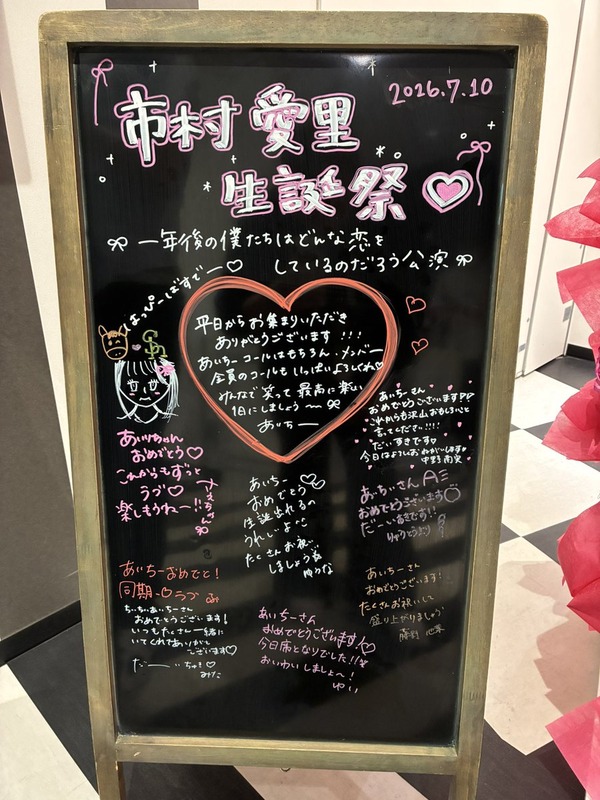 2026.7.10
市村 愛里
生誕祭
一年後の僕たちはどんな恋を
しているのだろう公演
はっぴーばすでー♡
平日からお集まりいただき
ありがとうございます!!!
あいちーコールはもちろん、メンバー
全員のコールもいっぱいよろしくね♡
みんなで笑って最高に楽しい
1日にしましょう〜
あいちー
あいりちゃん
おめでとう♡
これからもずっと
楽しもうねー!!
あいちー
おめでとう♡
生誕出れるの
うれしいよ〜
たくさんお祝い
しましょう
ゆうな
あいちーさん
おめでとうございます
これからも沢山おもしろいこと
言ってください!!!!
だいすきです♡
今日はよろしくおねがいします
おめでとうございます♡
だーいすきです!!
あいちーおめでとう!
同期
ちぃちぃあいちーさん
おめでとうございます!
いつもたくさん一緒に
いてくれてありがとう
ございます♡
あいちーさん
おめでとうございます!
今日席となりでした!!
おいわいしましょ〜!
ゆい
あいちーさん
おめでとうございます!
たくさんお祝いして
盛り上がりましょう